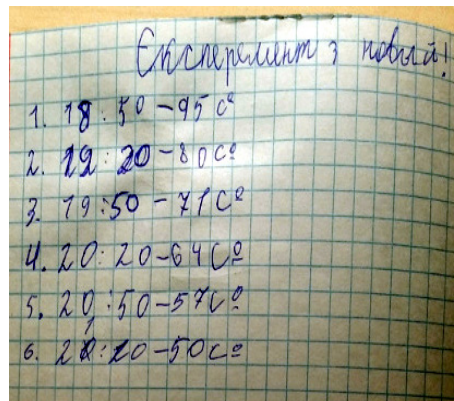 Єксперемент з новый!
1. 18:50-95 c°
2. 19:20-80c°
3. 19:50-71c°
4. 20:20-64c°
5. 20:50-57c°
6. 21:20-50c°